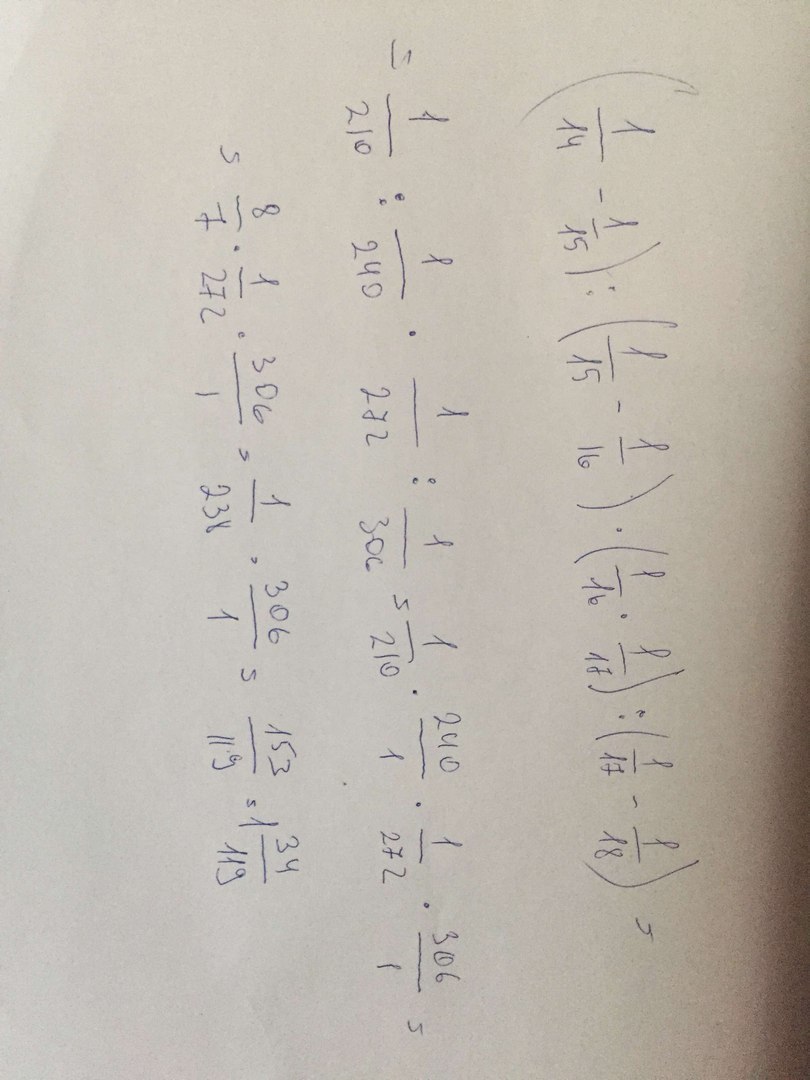 (1/14 - 1/15) : (1/15 - 1/16) · (1/16 · 1/17) : (1/17 - 1/18) =
= 1/210 : 1/240 · 1/272 : 1/306 = 1/210 · 240/1 · 1/272 · 306/1 =
= 8/7 · 1/272 · 306/1 = 1/238 · 306/1 = 153/119 = 1 34/119